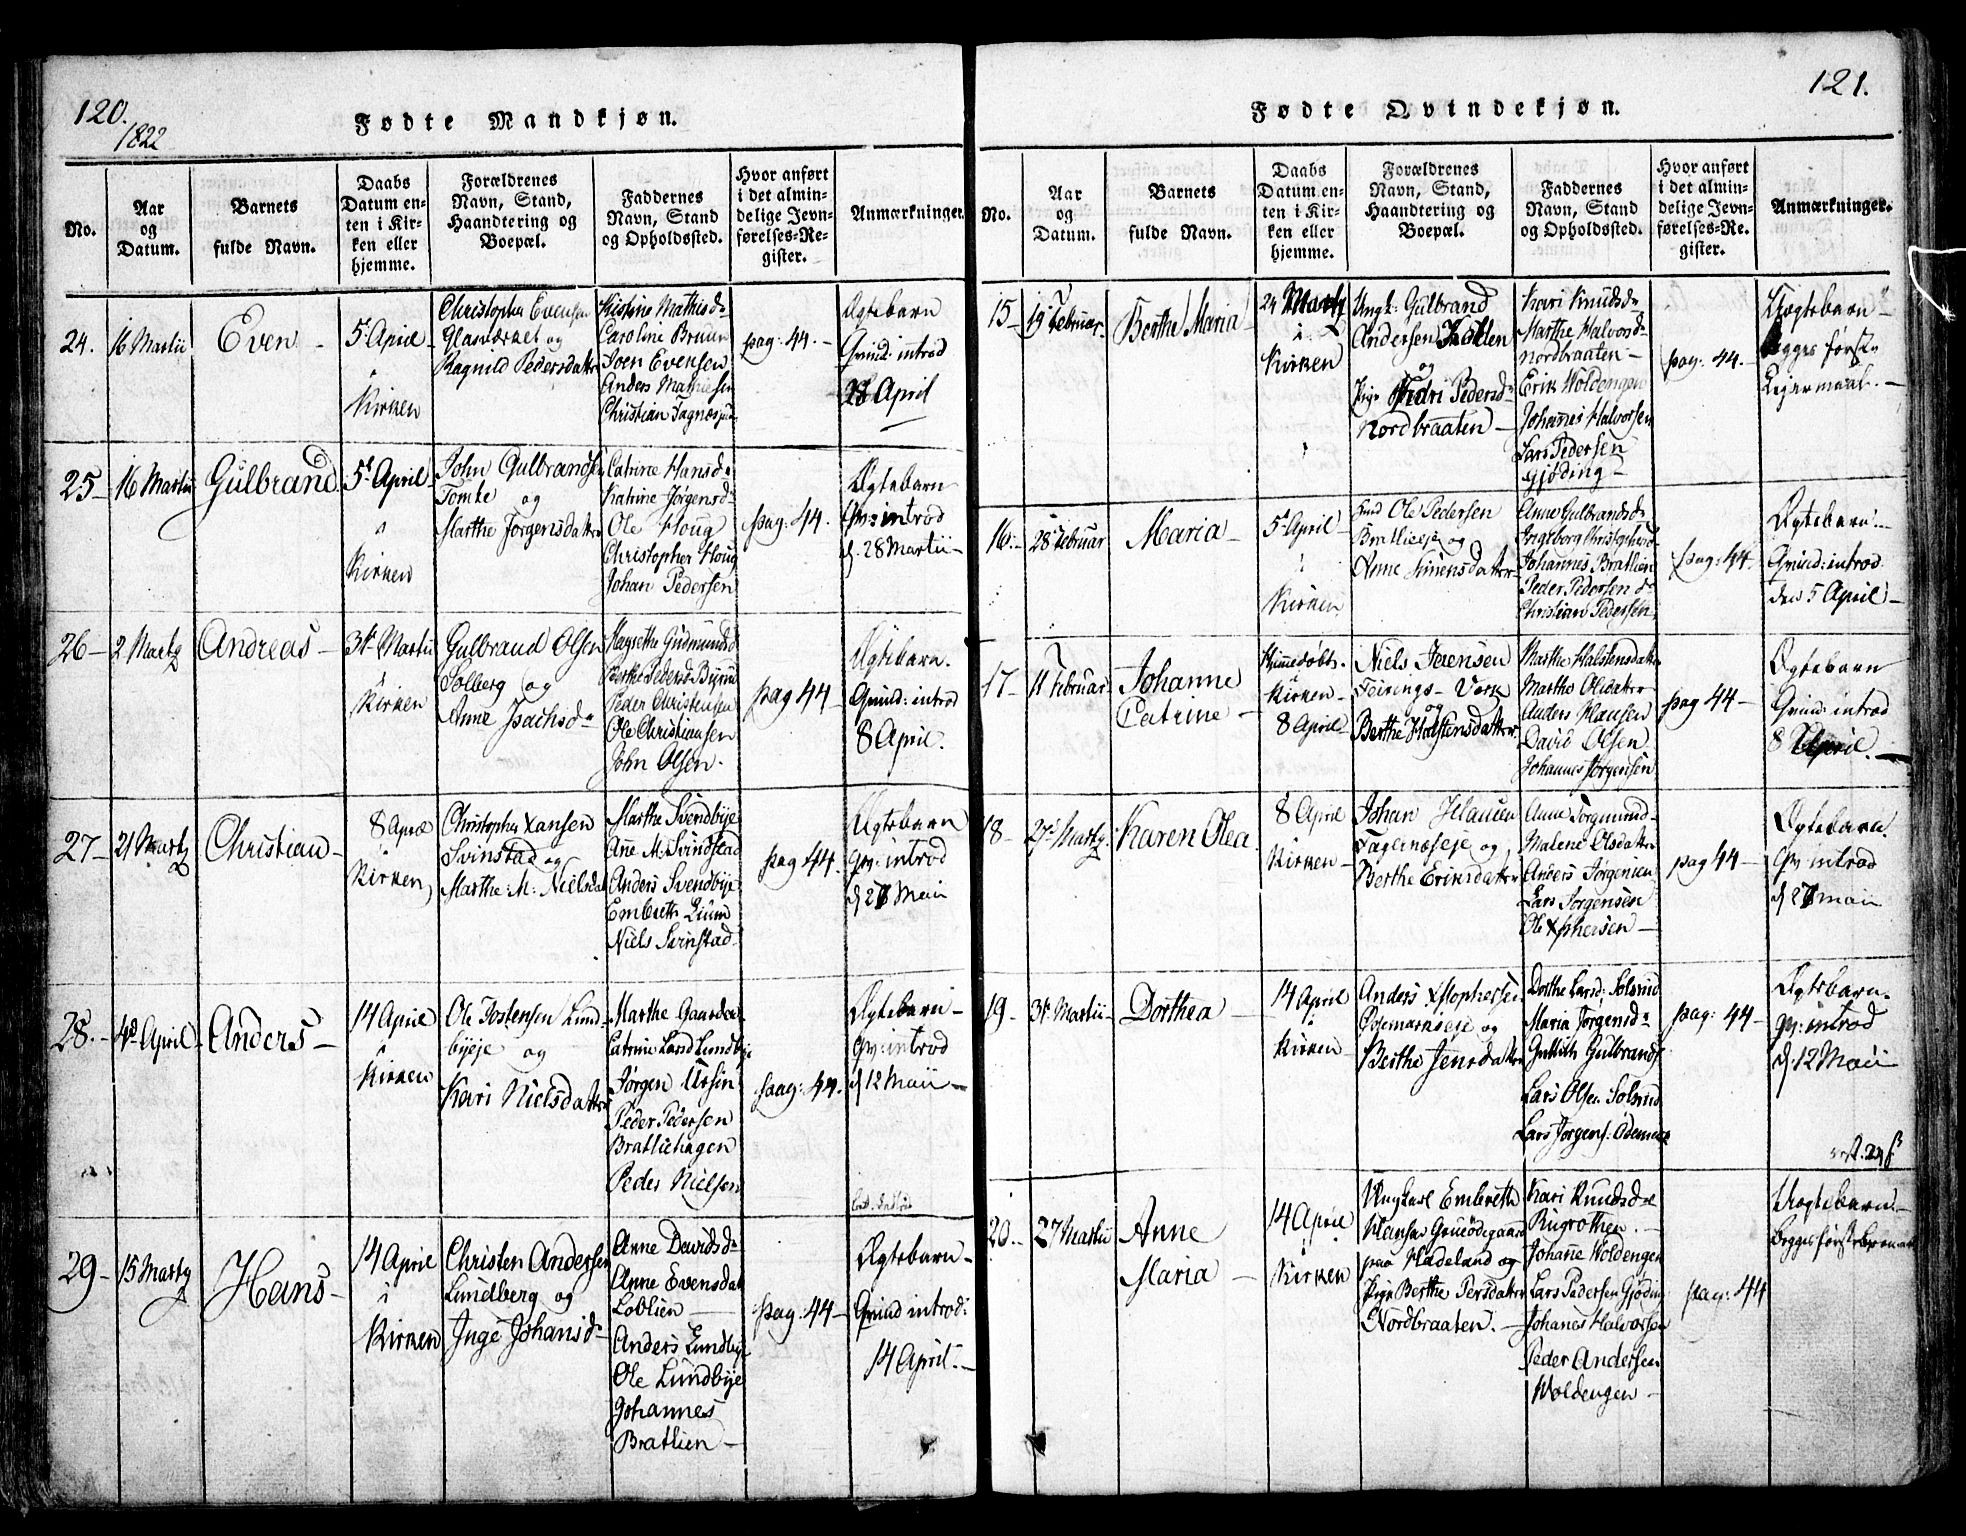 120.
1822
Fødte Mandkjøn.
No.
Aar
og
Datum.
Barnets
fulde Navn.
Daabs
Datum en-
ten i Kir-
ken eller
hjemme.
Forældrenes
Navn, Stand,
Haandtering og
Boepæl.
Faddernes
Navn, Stand
og Opholdssted.
Hvor anført
i det almin-
delige Jevn-
førelses-Re-
gister.
Anmærkninger.
24.
16 Martii
Even
5 April
i
Kirken
Christopher Evensen
Glasværket og
Ragnild Pedersdatter
Kistine Mathisd
Caroline Bruun
Joen Evensen
Anders Mathiesen
Christian
pag: 44.
Ægtebarn
Qvind: introd
28 April
25
16 Martii
Gulbrand
5 April
i
Kirken
John Gulbrands
Tomte og
Marthe Jørgensdatter
Catrine Hansd
Katrine Jørgensd
Ole Houg
Christopher Houg
Johan Pedersen
pag: 44.
Ægtebarn
Qv: introd
d. 28 Martii
26
2 Marty
Andreas
31 Martii
i
Kirken
Gulbrand Olsen
Solberg og
Anne Isachsd
Magrethe Gudmundsd
Berthe Pedersd
Peder Christensen
Ole Christiansen
John Olsen
pag 44
Ægtebarn.
Qvind: introd
8 April.
27
21 Marty
Christian
8 April
i
Kirken
Christopher Xansen
Svinstad og
Marthe M: Nielsdat
Marthe Svendbye
Ane M: Svindstad
Anders Svendbye
Embreth Lium
Niels Svinstad
pag 44.
Ægtebarn
Qv: introd
d 27 Maii
28.
4 April
Anders
14 April
i
Kirken
Ole Jostensen Lund-
byeje og
Kari Nielsdatter
Marthe Gaarder
Catrine Larsd Lundbye
Jørgen Ursin
Peder Pedersen
Bratliehagen
Peder Nielsen
pag: 44.
Ægtebarn
Qv: introd
d 12 Maii
29
15 Marty
Hans
14 April
i
Kirken
Christen Andersen
Lundberg og
Inge Johansd
Anne Davidsd
Anne Evensdat
Loblien
Anders Lundbye
Ole Lundbye
Johannes
Bratlien
pag: 44
Ægtebarn
Qvind introd:
14 April.
121.
Fødte Qvindekjøn.
No.
Aar
og
Datum.
Barnets
fulde Navn.
Daabs
Datum en-
ten i Kir-
ken eller
hjemme.
Forældrenes
Navn, Stand,
Haandtering og
Boepæl.
Faddernes
Navn, Stand
og Opholdssted.
Hvor anført
i det almin-
delige Jevn-
førelses-Re-
gister.
Anmærkninger.
15
19 Februar
Berthe Maria
24 Marty
i
Kirken
Ungk: Gulbrand
Andersen
og
Pige Pedersd
Nordbraaten
Kari Knudsd
Marthe Halvorsd
Nordbraaten
Erik Woldengen
Johannes Halvorsen
Lars Pedersen
Gjøding
pag: 44.
Uægtebarn
Begges første
Lejermaal.
16
28 Februar
Maria
5 April
i
Kirken
Ole Pedersen
Bratlieeje og
Anne Simensdatter
Anne Gulbrandsd
Ingeborg Christophersd
Johannes Bratlien
Peder Pedersen
Christian Pedersen
pag: 44
Ægtebarn
Qvind: introd
den 5 April
17
11 Februar
Johanne
Catrine
Hjemmedøbt
i
Kirken
8 April
Niels Jensen
Feirings Værk
og
Berthe Halstensdatter
Marthe Halstensdatter
Marthe Olsdatter
Anders Hansen
David Olsen
Johannes Jørgensen
pag 44
Ægtebarn
Qvind: introd
8 April.
18
27 Marty
Karen Olea
8 April
i
Kirken
Johan
Fagernæseje og
Berthe Eriksdatter
Anne
Malene Olsdatter
Anders Jørgensen
Lars Jørgensen
Ole Xphersen
pag 44
Ægtebarn.
Qv: introd
d 27 Maii
19
31 Martii
Dorthea
14 April
i
Kirken
Anders Xstophersen
Ødemarkseje og
Berthe Jensdatter
Dorthe Larsd: Solsrud
Maria Jørgensd
Gulbrands
Lars Olsen Solsrud
Lars Jørgens:
pag: 44
Ægtebarn.
Qv: introd
d 12 Maii
20.
27 Martii
Anne
Maria
14 April
i
Kirken
Ungkarl Embreth
Hansen
paa Hadeland og
Pige Berthe Persdatter
Nordbraaten.
Kari Knudsd
Rugrothen.
Johanne Woldengen
Lars Pedersen Gjøding
Johanes Halvorsen
Peder Andersen
Woldengen
pag: 44
Uægtebarn
Begges første